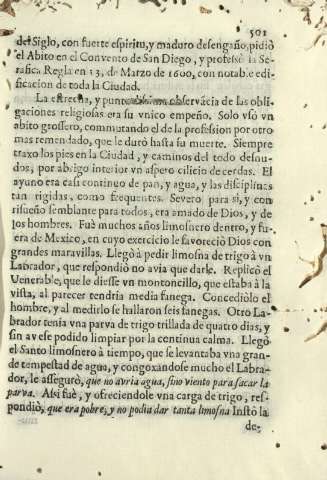 501
del Siglo, con fuerte espiritu, y maduro desengaño, pidiò
el Abito en el Convento de San Diego, y professò la Se-
rafica Regla en 13. de Marzo de 1600, con notable edi-
ficacion de toda la Ciudad.
La estrecha, y puntual observācia de las obli-
gaciones religiosas era su vnico empeño. Solo vsò vn
abito grossero, commutando el de la profession por otro
mas remendado, que le durò hasta su muerte. Siempre
traxo los pies en la Ciudad, y caminos del todo desnu-
dos, por abrigo interior vn aspero cilicio de cerdas. El
ayuno era casi continuo de pan, y agua, y las disciplinas
tan rigidas, como frequentes. Severo para si, y con
risueño semblante para todos, era amado de Dios, y de
los hombres. Fuè muchos años limosnero dentro, y fu-
era de Mexico, en cuyo exercicio le favoreciò Dios con
grandes maravillas. Llegò à pedir limosna de trigo à vn
Labrador, que respondiò no avia que darle. Replicò el
Venerable, que le diesse vn montoncillo, que estaba à la
vista, al parecer tendria media fanega. Concediòlo el
hombre, y al medirlo se hallaron seis fanegas. Otro La-
brador tenia vna parva de trigo trillada de quatro dias, y
sin averse podido limpiar por la continua calma. Llegò
el Santo limosnero à tiempo, que se levantaba vna gran-
de tempestad de agua, y congoxandose mucho el Labra-
dor, le assegurò, que no avria agua, sino viento para sacar la
parva. Assi fuè, y ofreciendole vna carga de trigo, res-
pondiò, que era pobre, y no podia dar tanta limosna Instò la
de-